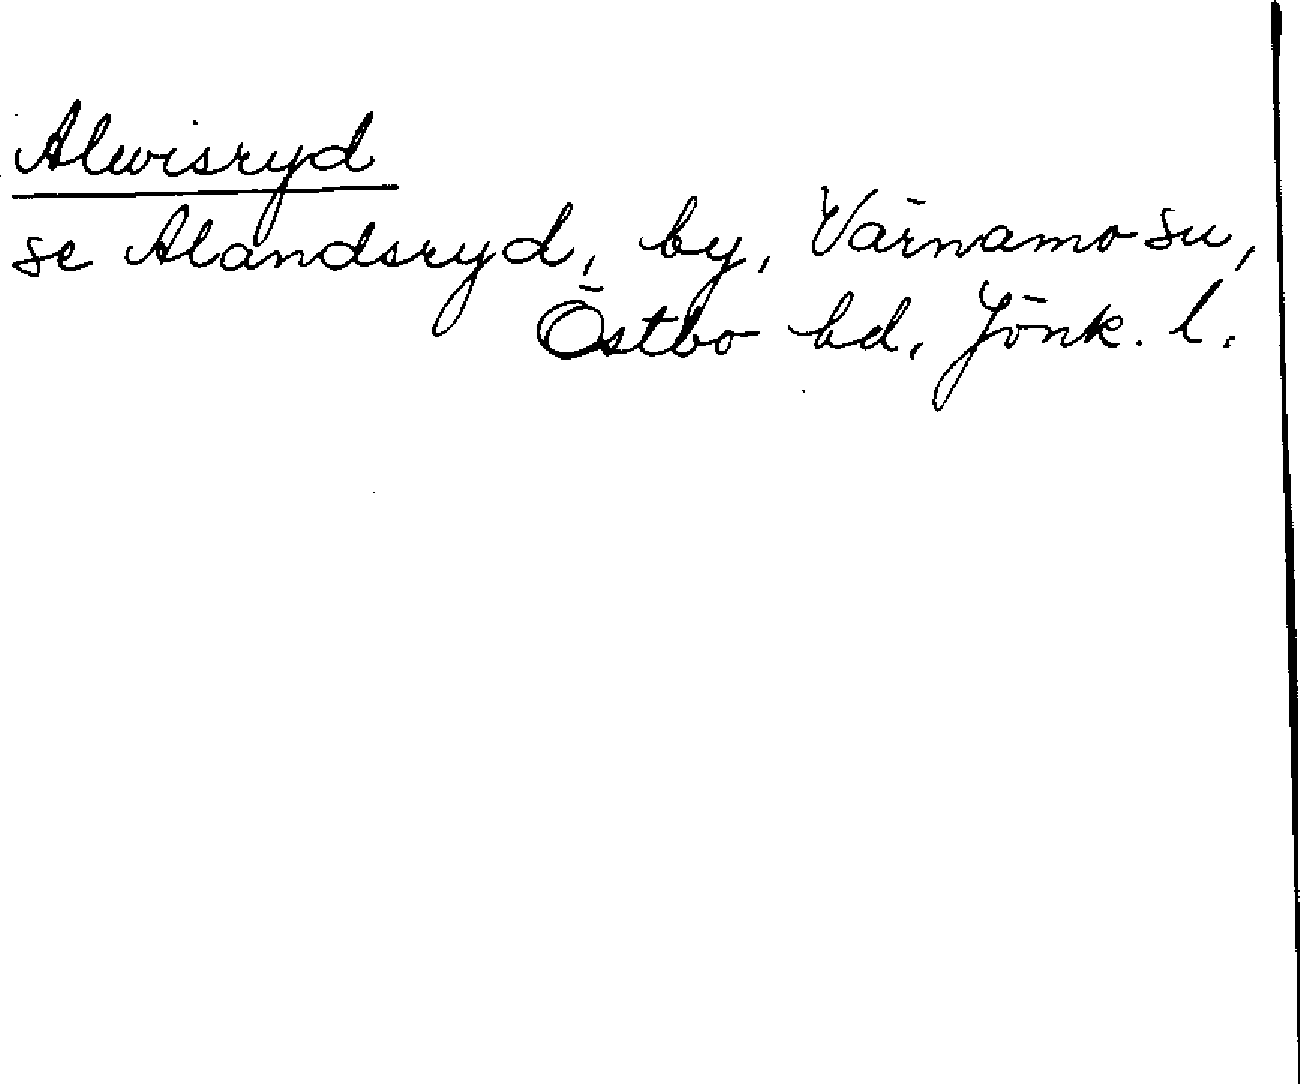 Alwisryd
se Alandsryd, by, Värnamo su,
Östbo hd, Jönk. l.